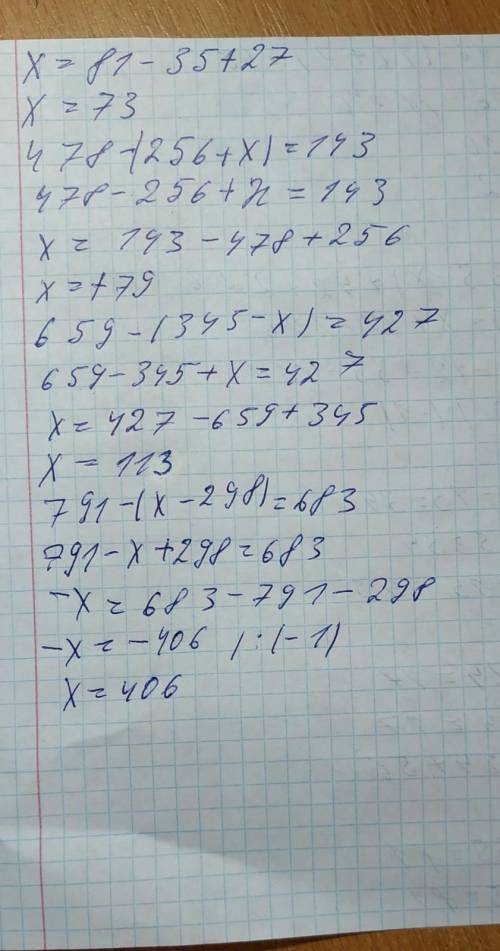 x = 81 - 35 + 27
x = 73
478 - (256 + x) = 143
478 - 256 + x = 143
x = 143 - 478 + 256
x = +79
659 - (345 - x) = 427
659 - 345 + x = 427
x = 427 - 659 + 345
x = 113
791 - (x - 298) = 683
791 - x + 298 = 683
-x = 683 - 791 - 298
-x = -406 / : (-1)
x = 406